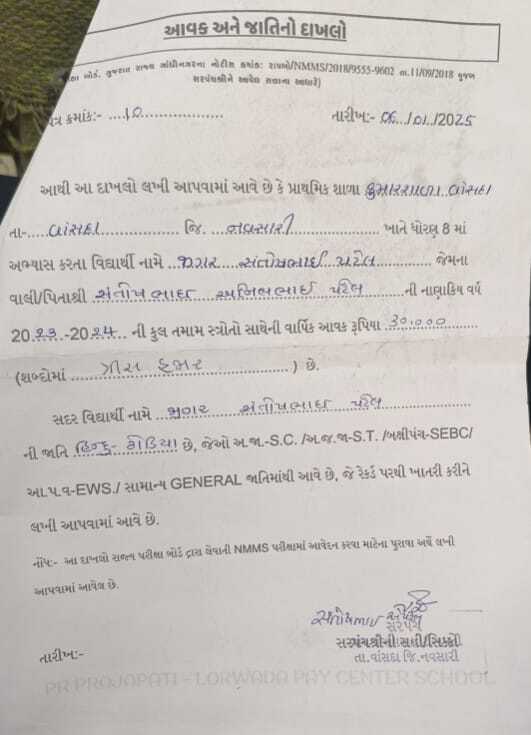 આવક અને જાતિનો દાખલો
બોર્ડ, ગુજરાત રાજ્ય ગાંધીનગરના નોટીસ ક્રમાંક: રાપબો/NMMS/2018/9555-9602 તા.11/09/2018 મુજબ
સરપંચશ્રીને આવેલ સત્તાના આધારે)
પત્ર ક્રમાંક:- ....10.................. તારીખ:- 06../01../2025
આથી આ દાખલો લખી આપવામાં આવે છે કે પ્રાથમિક શાળા કુમારશાળા..વાંસદા
તા-....વાંસદા................. જિ. ...નવસારી.................... ખાતે ધોરણ 8 માં
અભ્યાસ કરતા વિદ્યાર્થી નામે ...જીગર....સંતોષભાઈ..પટેલ............. જેમના
વાલી/પિતાશ્રી સંતોષભાઈ....અનિલભાઈ પટેલ..........ની નાણાકિય વર્ષ
2023..-2024.. ની કુલ તમામ સ્ત્રોતો સાથેની વાર્ષિક આવક રૂપિયા ..30,000........
(શબ્દોમાં ......ત્રીસ હજાર....................) છે.
સદર વિદ્યાર્થી નામે ...જીગર......સંતીષભાઈ....પટેલ...........
ની જાતિ હિન્દુ- ધોડિયા છે, જેઓ અ.જા.-S.C. /અ.જ.જા-S.T. /બક્ષીપંચ-SEBC/
આ.પ.વ-EWS./ સામાન્ય GENERAL જાતિમાંથી આવે છે, જે રેકર્ડ પરથી ખાતરી કરીને
લખી આપવામાં આવે છે.
નોંધ:- આ દાખલો રાજ્ય પરીક્ષા બોર્ડ દ્વારા લેવાની NMMS પરીક્ષામાં આવેદન કરવા માટેના પુરાવા અર્થે લખી
આપવામાં આવેલ છે.
સરપંચ
સરપંચશ્રીની સહી/સિક્કો
તારીખ:- તા.વાંસદા જિ.નવસારી
PR PROJOPATI - LORWADA PAY CENTER SCHOOL